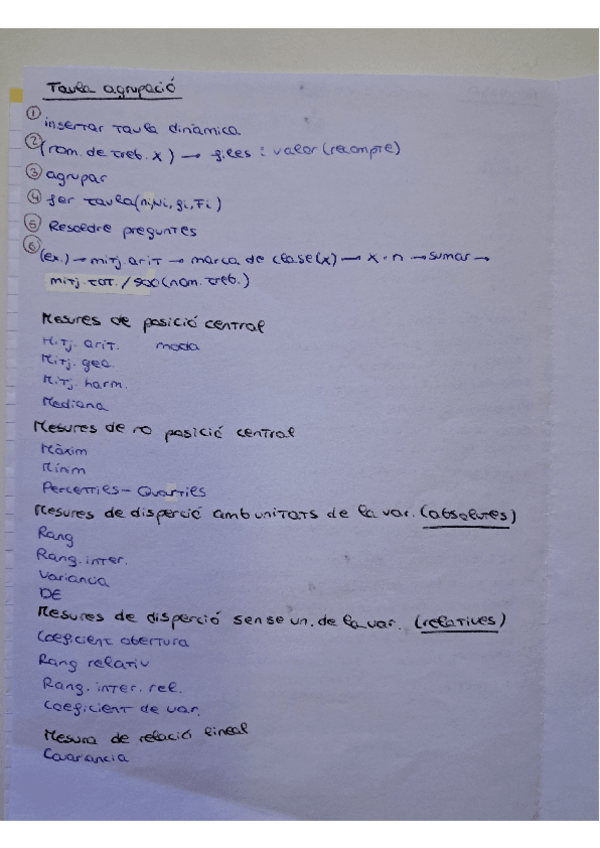 Taula agrupació
① insertar taula dinàmica
② (nom. de treb. x) → files : valor (recompte)
③ agrupar
④ fer taula (ni, Ni, fi, Fi)
⑤ Resoldre preguntes
⑥ (ex.) → mitj. arit → marca de clase (x) → x · n → sumar →
mitj. tot. / 500 (nom. treb.)
Mesures de posició central
Mitj. arit. moda
Mitj. geo
Mitj. harm.
Mediana
Mesures de no posició central
Màxim
Mínim
Percenties - Quarties
Mesures de disperció amb unitats de la var. (absolutes)
Rang
Rang. inter.
Variancia
DE
Mesures de disperció sense un. de la var. (relatives)
Coeficient obertura
Rang relativ
Rang. inter. rel.
Coeficient de var.
Mesura de relació lineal
Covarancia